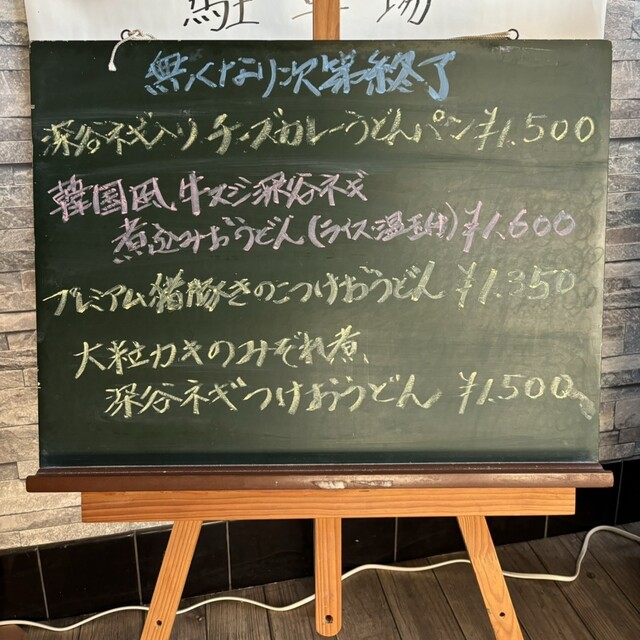 駐車場
無くなり次第終了
深谷ネギ入りチーズカレーうどんパン ¥1.500
韓国風牛スジ深谷ネギ
煮込みおうどん(ライス温玉付) ¥1.600
プレミアム猪豚きのこつけおうどん ¥1.350
大粒カキのみぞれ煮、
深谷ネギつけおうどん ¥1.500